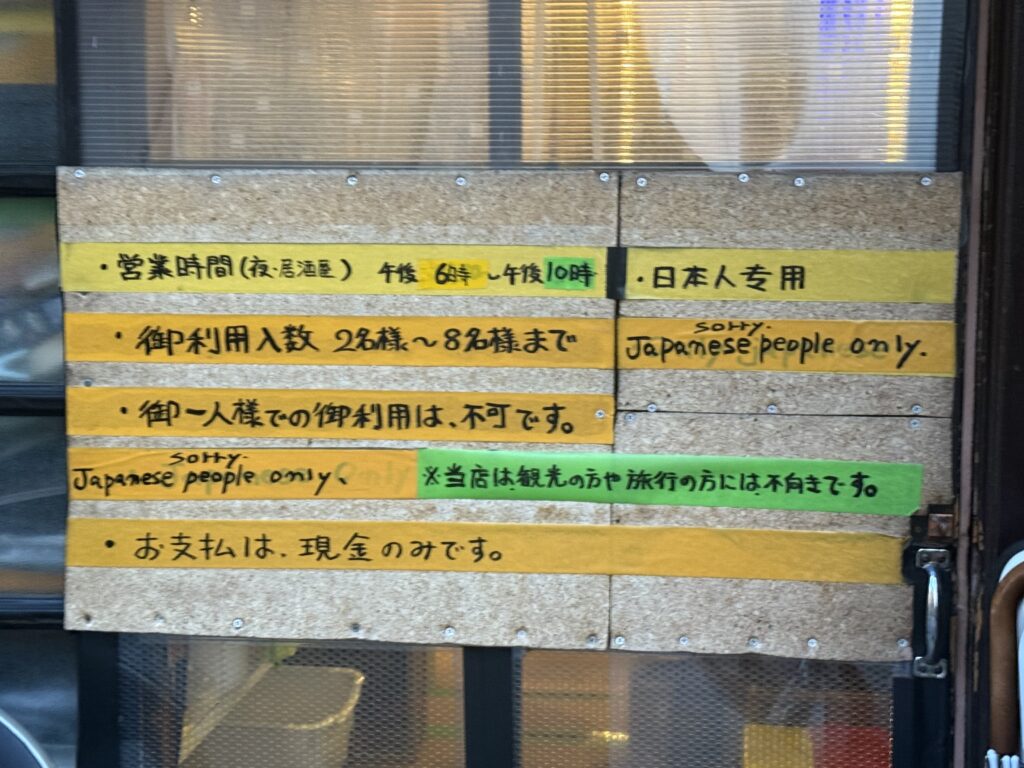 ・営業時間(夜・居酒屋) 午後6時~午後10時
・日本人专用
・御利用人数 2名様~8名様まで
sorry.
Japanese people only.
・御一人様での御利用は、不可です。
sorry.
Japanese people only.
※当店は、観光の方や旅行の方には、不向きです。
・お支払は、現金のみです。